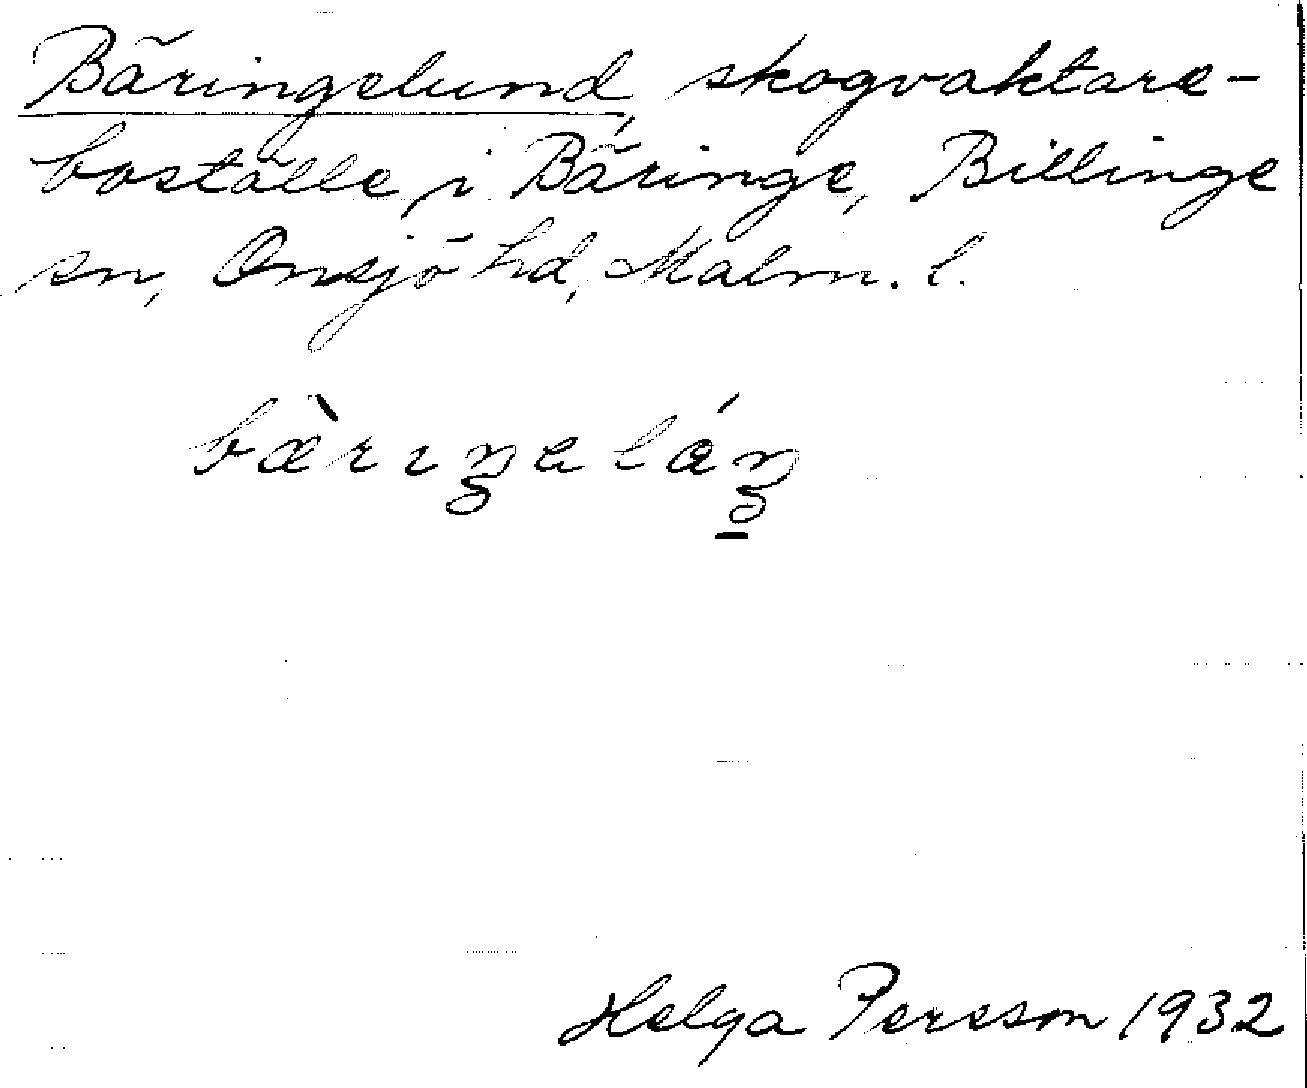 Bäringelund, skogvaktare-
boställe, i Bäringe, Billinge
sn, Onsjö hd, Malm. l.
Helga Persson 1932